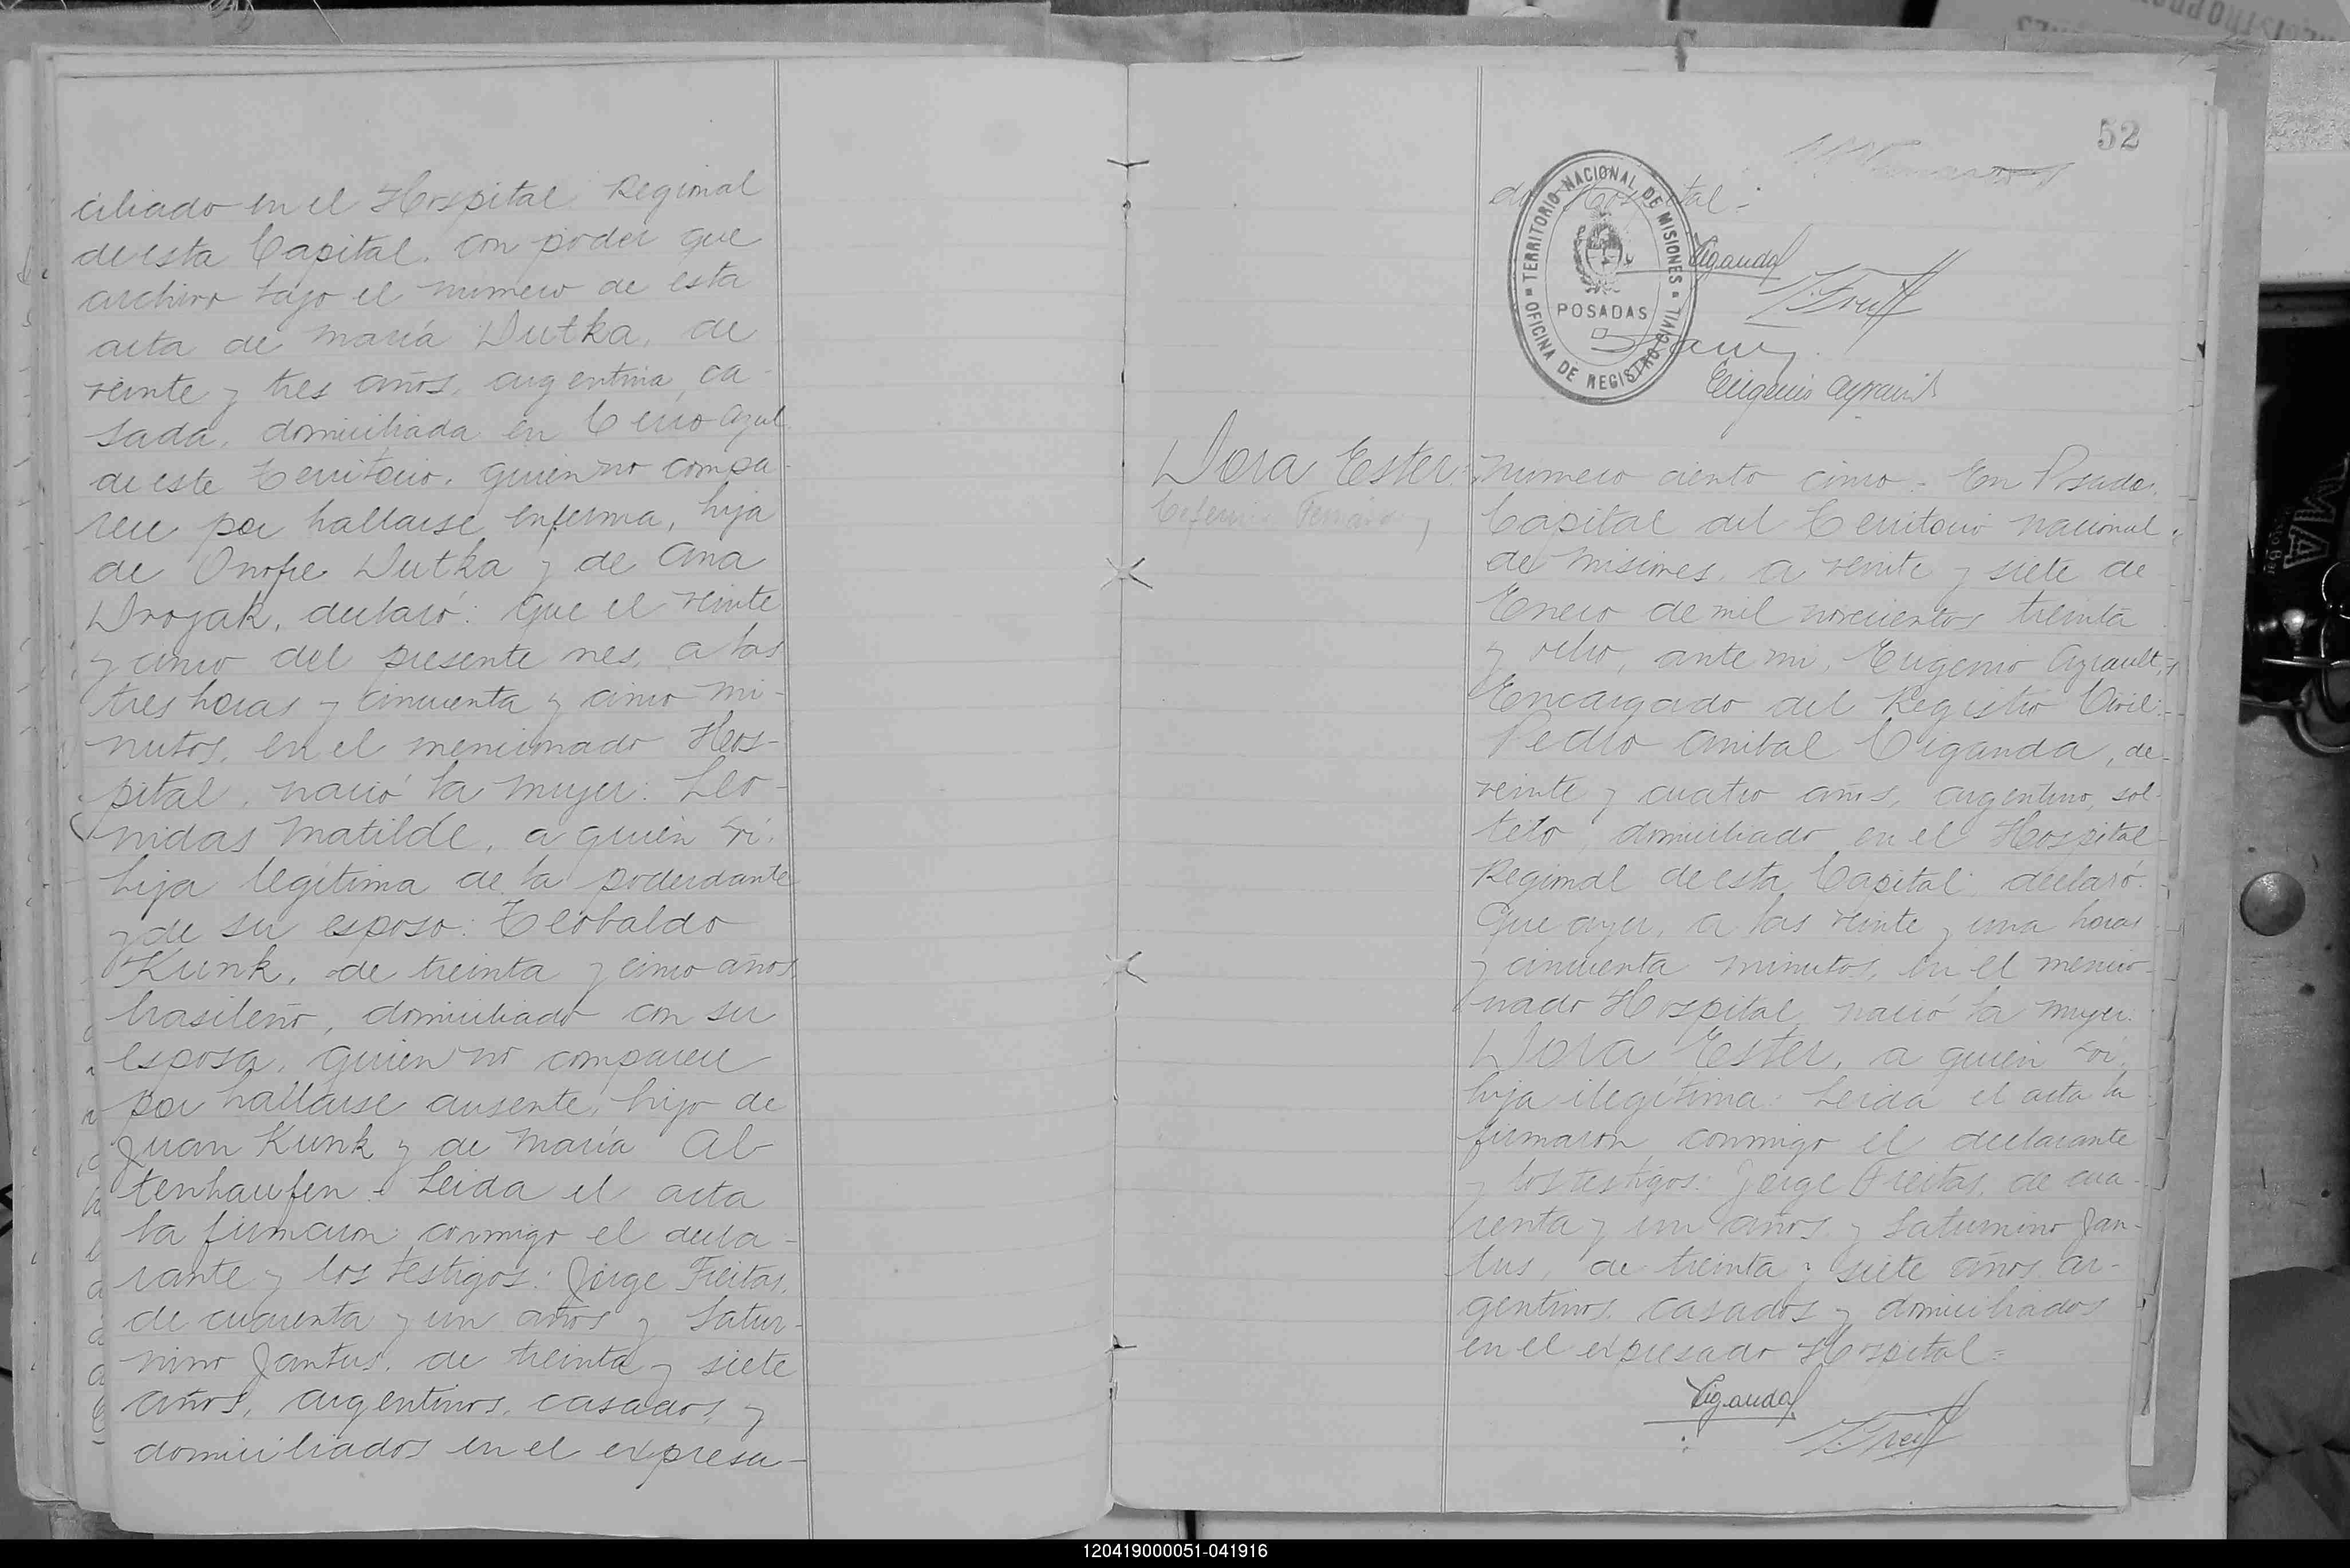 ciliado en el Hospital Regional
de esta Capital, con poder que
archivo bajo el numero de esta
acta de María Dutka, de
veinte y tres años, argentina, ca-
sada, domiciliada en Cerro Azul
de este Territorio, quien no compa-
rece por hallarse enferma, hija
de Onofre Dutka y de Ana
Drozak, declaró: Que el veinte
y cinco del presente mes, a las
tres horas y cincuenta y cinco mi-
nutos, en el mencionado Hos-
pital, nació la mujer: Leo-
nidas Matilde, a quien vi,
hija legítima de la poderdante
y de su esposo: Teobaldo
Kunk, de treinta y cinco años
brasileño, domiciliado con su
esposa, quien no comparece
por hallarse ausente, hijo de
Juan Kunk y de María Al-
tenhaufen.- Leida el acta
la firmaron conmigo el decla-
rante y los testigos: Jorge Freitas,
de cuarenta y un años y Satur-
nino Jantus, de treinta y siete
años, argentinos, casados y
domiciliados en el expresa-
52
do Hospital=
TERRITORIO NACIONAL DE MISIONES
POSADAS
OFICINA DE REGISTRO CIVIL
Ciganda
Eugenio Ayrault
Dora Ester=
Numero ciento cinco.- En Posadas
Capital del Territorio Nacional
de Misiones, a veinte y siete de
Enero de mil novecientos treinta
y ocho, ante mi, Eugenio Ayrault,
Encargado del Registro Civil:
Pedro Anibal Ciganda, de
veinte y cuatro años, argentino, sol-
tero, domiciliado en el Hospital
Regional de esta Capital, declaró:
Que ayer, a las veinte y una horas
y cincuenta minutos, en el mencio-
nado Hospital, nació la mujer:
Dora Ester, a quien vi,
hija ilegítima. Leida el acta la
firmaron conmigo el declarante
y los testigos: Jorge Freitas, de cua-
renta y un años y Saturnino Jan-
tus, de treinta y siete años, ar-
gentinos, casados y domiciliados
en el expresado Hospital=
Ciganda
120419000051-041916